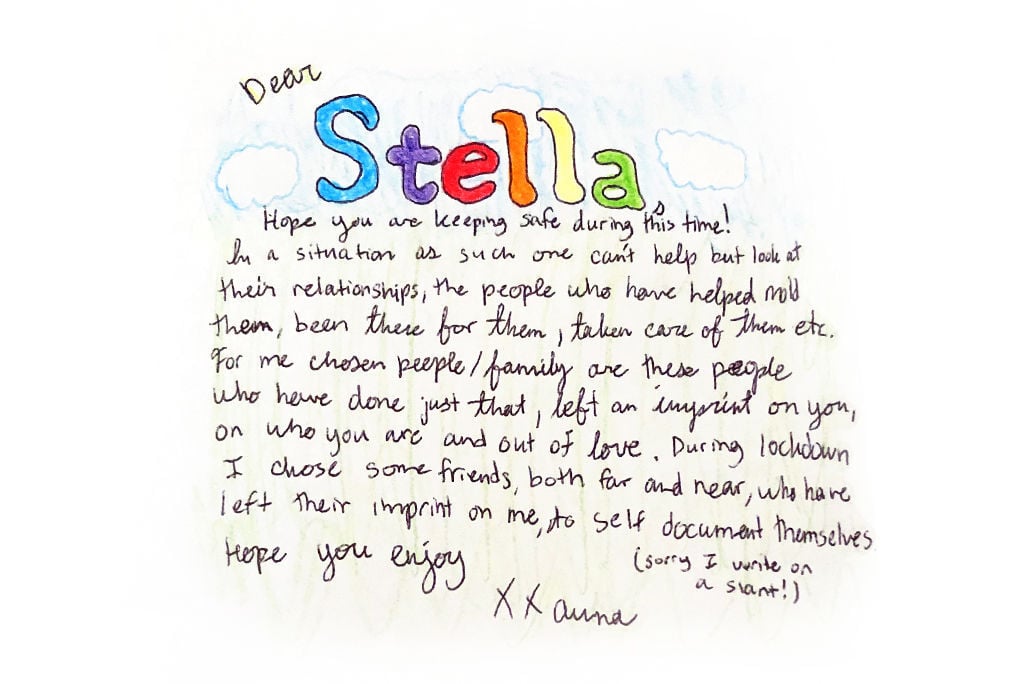 Dear
Stella,
Hope you are keeping safe during this time!
In a situation as such one can't help but look at
their relationships, the people who have helped mold
them, been there for them, taken care of them etc.
For me chosen people/family are these people
who have done just that, left an imprint on you,
on who you are and out of love. During lockdown
I chose some friends, both far and near, who have
left their imprint on me, to self document themselves
Hope you enjoy
(sorry I write on
a slant!)
XX anna